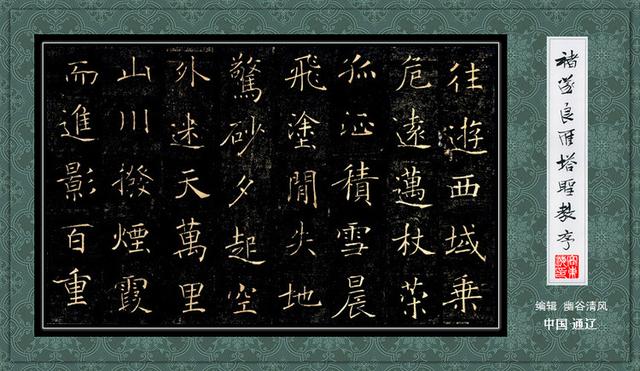 往遊西域乘
危遠邁杖策
孤征積雪晨
飛塗閒失地
驚砂夕起空
外迷天萬里
山川撥煙霞
而進影百重
褚遂良雁塔聖教序
编辑 幽谷清风
中国·通辽